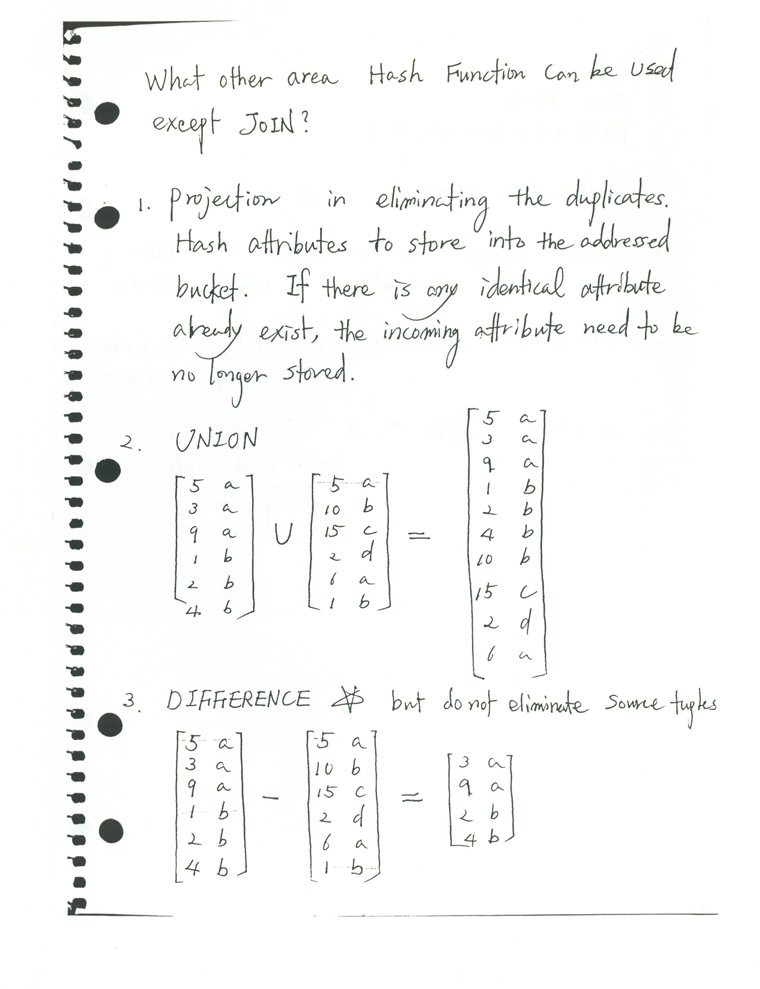 What other area Hash Function can be used
except JOIN?
1. Projection in eliminating the duplicates.
Hash attributes to store into the addressed
bucket. If there is any identical attribute
already exist, the incoming attribute need to be
no longer stored.
2. UNION
5 a
3 a
9 a
1 b
2 b
4 b
∪
5 a
10 b
15 c
2 d
6 a
1 b
=
5 a
3 a
9 a
1 b
2 b
4 b
10 b
15 c
2 d
6 a
3. DIFFERENCE ☆ but do not eliminate source tuples
5 a
3 a
9 a
1 b
2 b
4 b
−
5 a
10 b
15 c
2 d
6 a
1 b
=
3 a
9 a
2 b
4 b